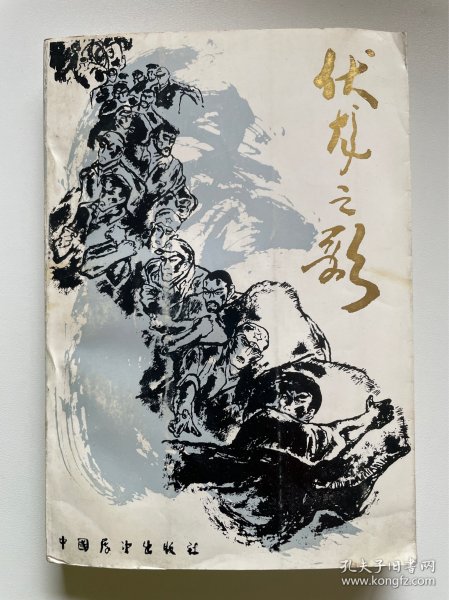 伏龙之歌
中国展望出版社
孔夫子旧书网
www.kongfz.com